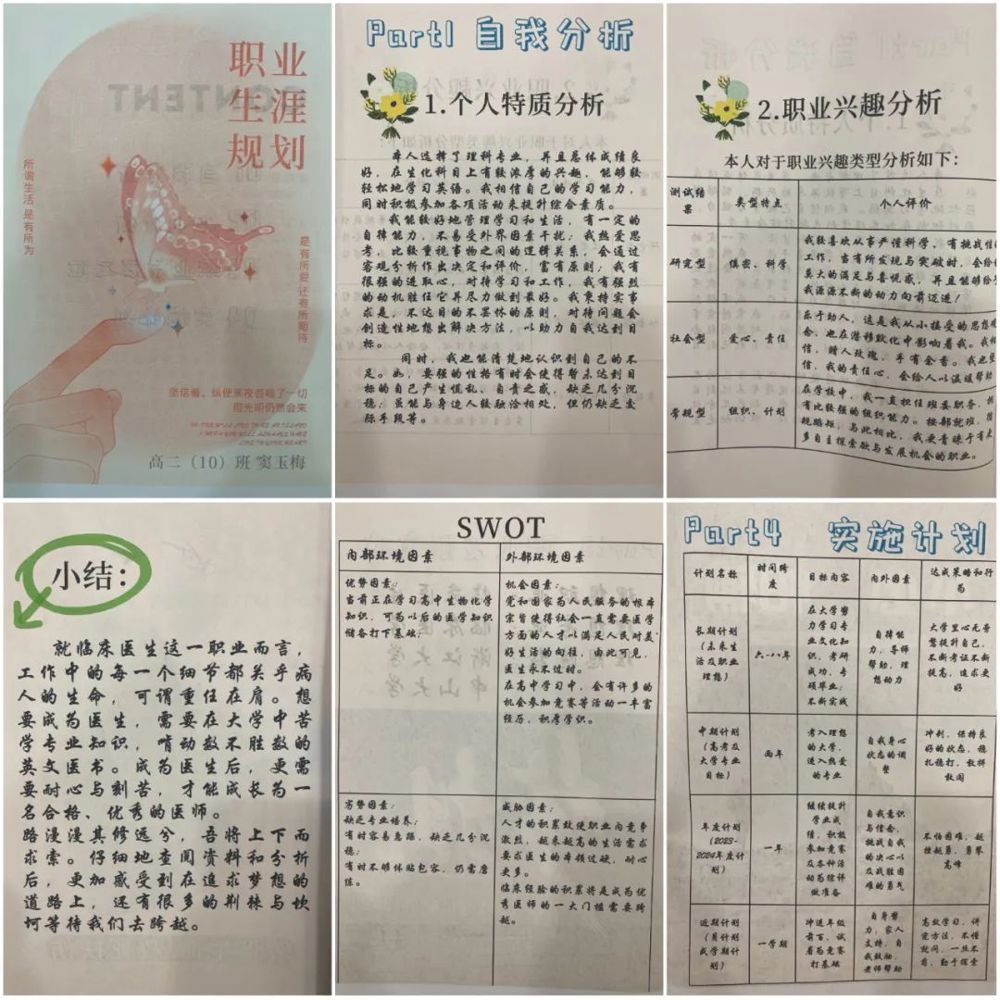 职业
生涯
规划
所谓生活 是有所为
是有所爱 还有所期待
坚信着，纵使黑夜吞噬了一切
但光明仍然会来
高二（10）班 窦玉梅
Part1 自我分析
1.个人特质分析
本人选择了理科专业，并且总体成绩良
好，在生化科目上有较浓厚的兴趣，能够较
轻松地学习英语。我相信自己的学习能力，
同时积极参加各项活动来提升综合素质。
我能较好地管理学习和生活，有一定的
自律能力，不易受外界因素干扰；我热爱思
考，比较重视事物之间的逻辑关系，会通过
客观分析作出决定和评价，富有原则；我有
很强的进取心，对待学习和工作，我有强烈
的动机胜任它并尽力做到最好。我秉持实事
求是，不达目的不罢休的原则，对待问题会
创造性地想出解决方法，以助力自我达到目
标。
同时，我也能清楚地认识到自己的不
足。如，要强的性格有时会使得暂未达到目
标的自己产生慌乱、自责之感，缺乏几分沉
稳；虽能与身边人较融洽相处，但仍缺乏交
际手段等。
2.职业兴趣分析
本人对于职业兴趣类型分析如下：
测试结果
类型特点
个人评价
研究型
慎密、科学
我较喜欢从事严谨科学、有挑战性
工作，当有所发现与突破时，会给
莫大的满足与喜悦感，并且能够给
我源源不断的动力向前迈进！
社会型
爱心、责任
乐于助人，这是我从小接受的思想
念，也在潜移默化中影响着我。我
信，赠人玫瑰，手有余香。我也坚
信，我的责任心，会给人以温暖帮助
常规型
组织、计划
在学校中，我一直担任班委职务，拥
有比较强的组织能力。按部就班、
规蹈矩，与此相比，我更青睐于有
多自主探索欲与发展机会的职业。
小结：
就临床医生这一职业而言，
工作中的每一个细节都关乎病
人的生命，可谓重任在肩。想
要成为医生，需要在大学中苦
学专业知识，啃动数不胜数的
英文医书。成为医生后，更需
要耐心与刻苦，才能成长为一
名合格、优秀的医师。
路漫漫其修远兮，吾将上下而
求索。仔细地查阅资料和分析
后，更加感受到在追求梦想的
道路上，还有很多的荆棘与坎
坷等待我们去跨越。
SWOT
内部环境因素
外部环境因素
优势因素：
当前正在学习高中生物化学
知识，可为以后的医学知识
储备打下基础；
机会因素：
党和国家为人民服务的根本
宗旨使得社会一直需要医学
方面的人才以满足人民对美
好生活的向往，由此可见，
医生永不过时。
在高中学习中，会有许多的
机会参加竞赛等活动一丰富
经历，积厚学识。
劣势因素：
缺乏专业培养；
有时容易急躁，缺乏几分沉
稳；
有时不够体贴包容，仍需磨
练。
威胁因素：
人才的积累致使职业内竞争
激烈，越来越高的生活需求
要求医生的本领过硬，耐心
更多。
临床经验的积累将是成为优
秀医师的一大门槛需要跨
越。
Part4 实施计划
计划名称
时间跨度
目标内容
内外因素
达成策略和行为
长期计划
（未来生
活及职业
理想）
六-八年
在大学努
力学习专
业文化知
识，考研
成功，专
硕毕业；
不断实践
自律能
力、导师
帮助，理
想动力
大学重心无旁
骛提升自己，
不断考证不断
提高，追求更
好
中期计划
（高考及
大学专业
目标）
两年
考入理想
的大学，
进入热爱
的专业
自我身心
状态的调
整
冲刺，保持良
好的状态，稳
扎稳打，敢拼
敢闯
年度计划
（2023-
2024年度计
划）
一年
继续提升
学业成
绩，积极
参加竞赛
及各种活
动为综评
做准备
自我意识
与信念，
挑战自我
的决心以
及战胜困
难的勇气
不怕困难，越
挫越勇，勇攀
高峰
近期计划
（月计划
或学期计
划）
一学期
冲进年级
前百，试
着为竞赛
打基础
自身努
力，家人
支持，自
我鼓励，
老师帮助
高效学习，讲
究方法，不懂
就问，一丝不
苟，勤于探索